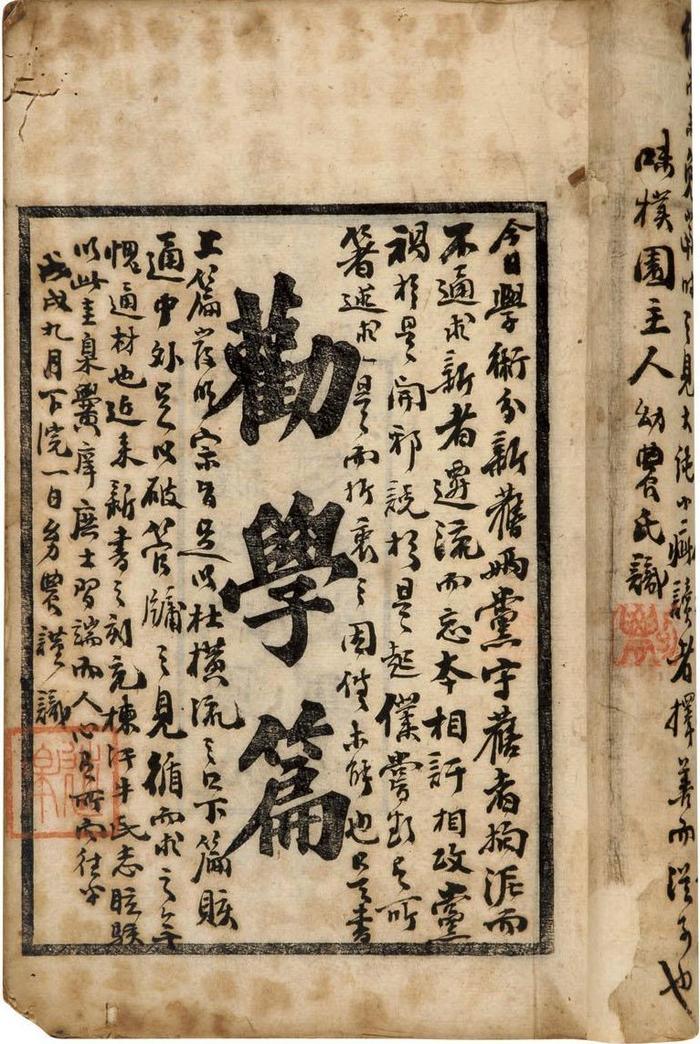 見大純小疵讀者擇善而從可也
味樸園主人幼農氏識
今日學術分新舊兩黨守舊者拘泥而
不通求新者遷流而忘本相訐相攻黨
禍於是開邪說於是起僕嘗所
著述求一是而折衷之也書
勸學篇
上篇明宗旨足以杜橫流之口下篇賅
通中外足以破管牖之見循而求之無
愧通材也近來新書之刻充棟汗牛民志眩駭
以此圭臬黌庠庶士習端而人心有所向往乎
戊戌九月下浣一日幼農謹識